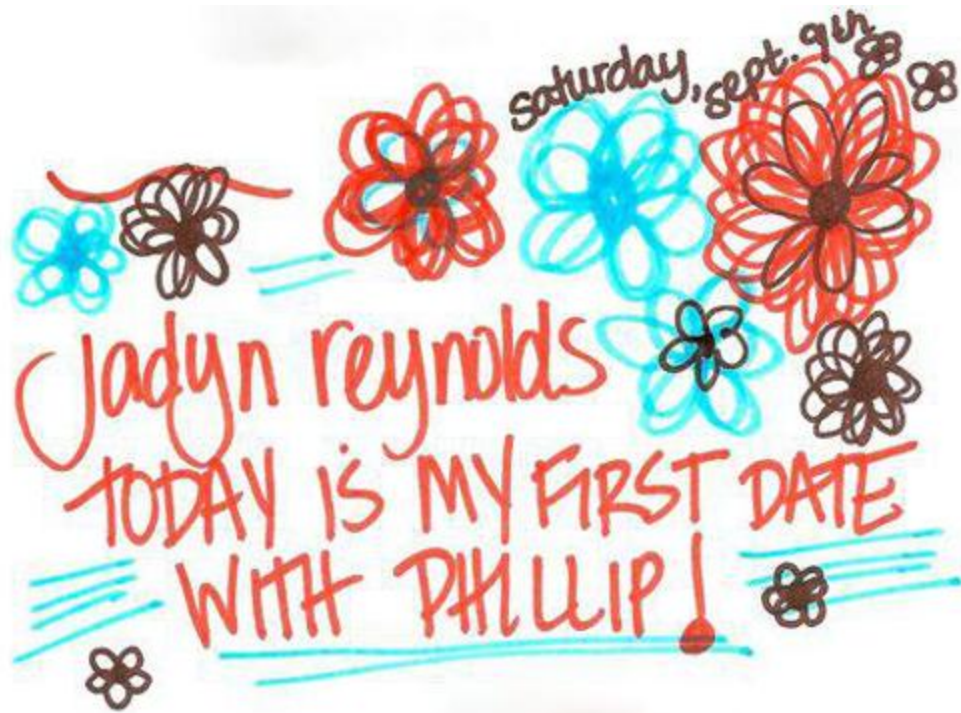 saturday, sept. 9th
Jadyn reynolds
TODAY IS MY FIRST DATE
WITH PHILLIP!